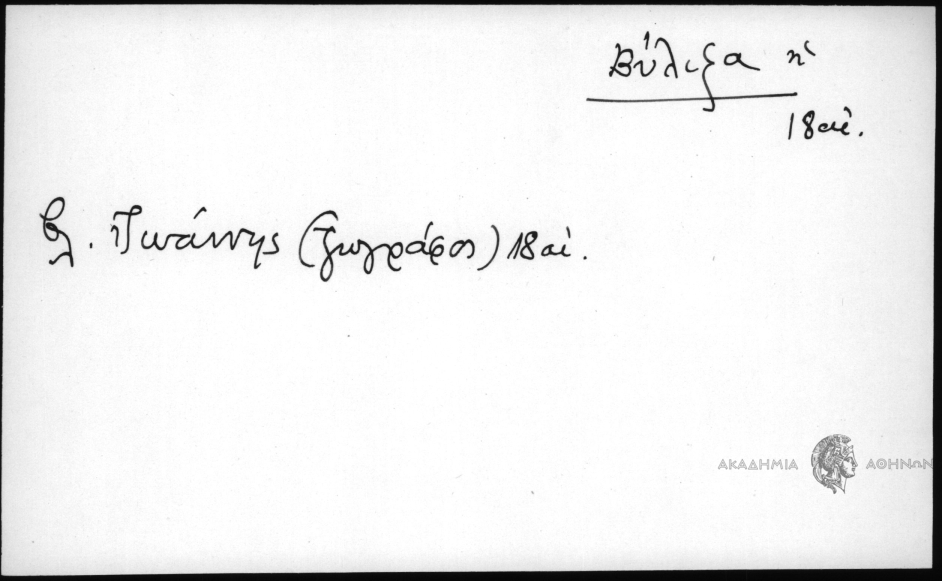 Βύλιζα ἡ
18 αἰ.
βλ. Ἰωάννης (ζωγράφος) 18 αἰ.
ΑΚΑΔΗΜΙΑ ΑΘΗΝΩΝ